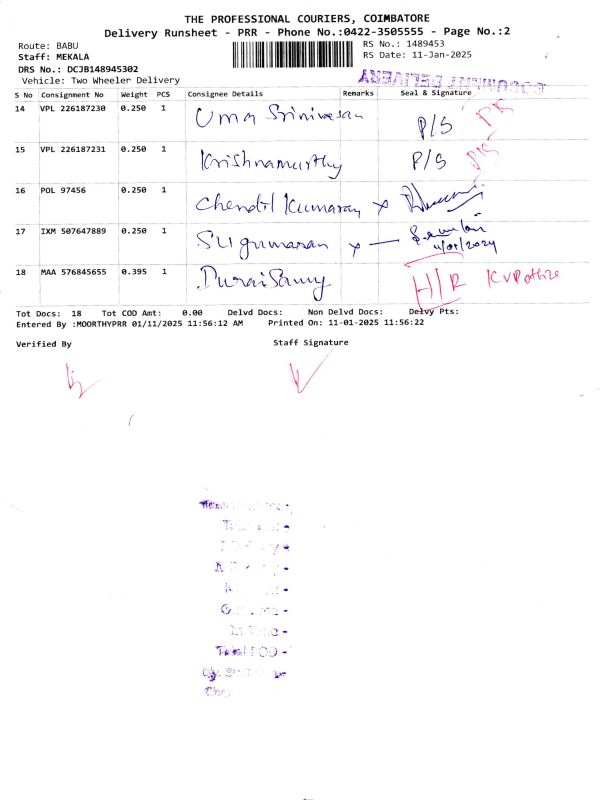 THE PROFESSIONAL COURIERS, COIMBATORE
Delivery Runsheet - PRR - Phone No.:0422-3505555 - Page No.:2
Route: BABU
RS No.: 1489453
Staff: MEKALA
RS Date: 11-Jan-2025
DRS No.: DCJB148945302
Vehicle: Two Wheeler Delivery
DOCUMENT DELIVERY
S No Consignment No Weight PCS Consignee Details Remarks Seal & Signature
14 VPL 226187230 0.250 1 Uma Srinivasan P/S
15 VPL 226187231 0.250 1 Krishnamurthy P/S P/S
16 POL 97456 0.250 1 Chendil Kumaran x
17 IXM 507647889 0.250 1 Sugumaran x
18 MAA 576845655 0.395 1 Duraisamy H/R
Tot Docs: 18 Tot COD Amt: 0.00 Delvd Docs: Non Delvd Docs: Delvy Pts:
Entered By :MOORTHYPRR 01/11/2025 11:56:12 AM Printed On: 11-01-2025 11:56:22
Verified By Staff Signature
Total POD -